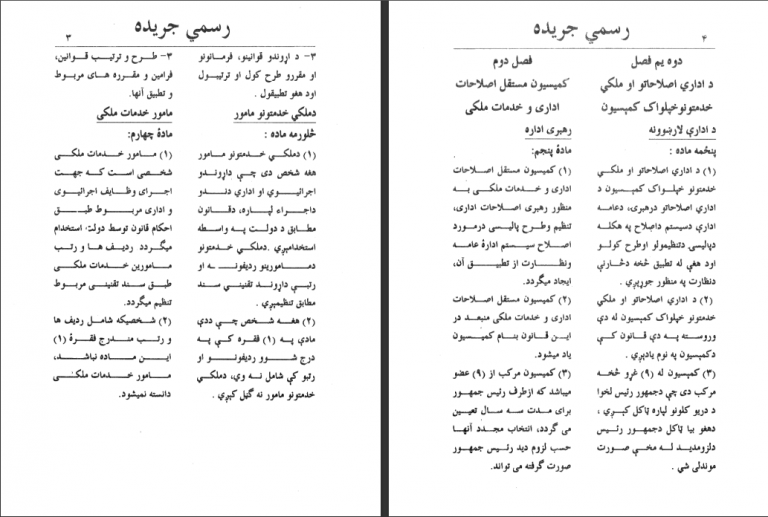 رسمي جريده
۳
۳- د اړوندو قوانينو، فرمانونو
او مقررو طرح کول او ترتيبول
اود هغو تطبيقول .
دملکي خدمتونو مامور
څلورمه ماده :
(۱) دملکي خدمتونو مامور
هغه شخص دی چې داړوندو
اجرائيوي او اداري دندو
داجراء لپاره، دقانون
مطابق د دولت په واسطه
استخدامېږي .دملکي خدمتونو
دمامورينو رديفونه او
رتبې داړوند تقنيني سند
مطابق تنظيمېږي .
(۲) هغه شخص چې ددې
مادې په (۱) فقره کې په
درج شوو رديفونو او
رتبو کې شامل نه وي، دملکي
خدمتونو مامور نه گڼل کېږي .
۳- طرح و ترتيب قوانين،
فرامين و مقرره های مربوط
و تطبيق آنها.
مامور خدمات ملکی
مادۀ چهارم:
(۱) مامور خدمات ملکی
شخصی است که جهت
اجرای وظايف اجرائيوی
و اداری مربوط طبق
احکام قانون توسط دولت استخدام
ميگردد رديف ها و رتب
مامورين خدمات ملکی
طبق سند تقنينی مربوط
تنظيم ميگردد.
(۲) شخصيکه شامل رديف ها
و رتب مندرج فقرۀ (۱)
اين ماده نباشد،
مامور خدمات ملکی
دانسته نميشود.
رسمي جريده
۴
دوه يم فصل
د اداري اصلاحاتو او ملکي
خدمتونوخپلواک کمېسيون
د ادارې لارښوونه
پنځمه ماده :
(۱) د اداري اصلاحاتو او ملکي
خدمتونو خپلواک کمېسيون د
اداري اصلاحاتو درهبرۍ، دعامه
ادارې دسيستم داصلاح په هکله
دپاليسۍ دتنظيمولو اوطرح کولو
اود هغې له تطبيق څخه دڅارنې
دنظارت په منظور جوړېږي .
(۲) د اداري اصلاحاتو او ملکي
خدمتونو خپلواک کمېسيون له دې
وروسته په دې قانون کې
دکمېسيون په نوم يادېږي .
(۳) کمېسيون له (۹) غړو څخه
مرکب دی چې دجمهور رئيس لخوا
د دريو کلونو لپاره ټاکل کېږي ،
دهغو بيا ټاکل دجمهور رئيس
دلزومديد له مخې صورت
موندلی شي .
فصل دوم
کميسيون مستقل اصلاحات
اداری و خدمات ملکی
رهبری اداره
مادۀ پنجم:
(۱) کميسيون مستقل اصلاحات
اداری و خدمات ملکی به
منظور رهبری اصلاحات اداری،
تنظيم وطرح پاليسی درمورد
اصلاح سيستم ادارۀ عامه
ونظارت از تطبيق آن،
ايجاد ميگردد.
(۲) کميسيون مستقل اصلاحات
اداری و خدمات ملکی منبعد در
اين قانون بنام کميسيون
ياد ميشود.
(۳) کميسيون مرکب از (۹) عضو
ميباشد که ازطرف رئيس جمهور
برای مدت سه سال تعيين
می گردد، انتخاب مجدد آنها
حسب لزوم ديد رئيس جمهور
صورت گرفته می تواند.